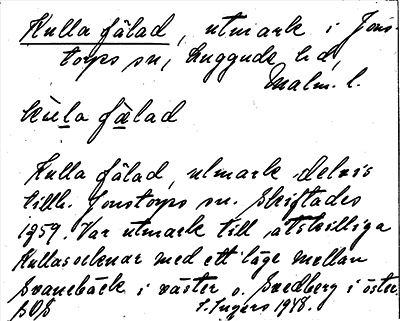 Kulla fälad, utmark i Jons-
torps sn, Luggude hd,
Malm. l.
kùla fælad
Kulla fälad, utmark delvis
tillh. Jonstorps sn. Skiftades
1959. Var utmark till åtskilliga
Kullasocknar med ett läge mellan
Svanebäck i väster o. Svedberg i öster.
SOS I. Ingers 1948.